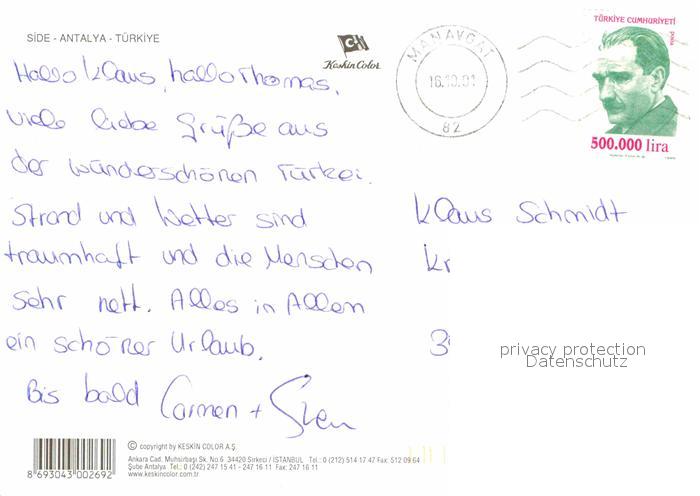 SİDE - ANTALYA - TÜRKİYE
Keskin Color
MANAVGAT
16.10.01
82
TÜRKİYE CUMHURİYETİ
500.000 lira
Hallo Klaus, hallo Thomas,
viele liebe Grüße aus
der wunderschönen Türkei.
Strand und Wetter sind
traumhaft und die Menschen
sehr nett. Alles in Allem
ein schöner Urlaub.
Bis bald Carmen + Sven
Klaus Schmidt
Kr
3
privacy protection
Datenschutz
© copyright by KESKİN COLOR A.Ş.
Ankara Cad. Muhsirbaşı Sk. No.6 34420 Sirkeci / İSTANBUL Tel.: 0 (212) 514 17 47 Fax: 512 09 64
Şube Antalya Tel.: 0 (242) 247 15 41 - 247 16 11 Fax: 247 16 11
www.keskincolor.com.tr
8 693043 002692